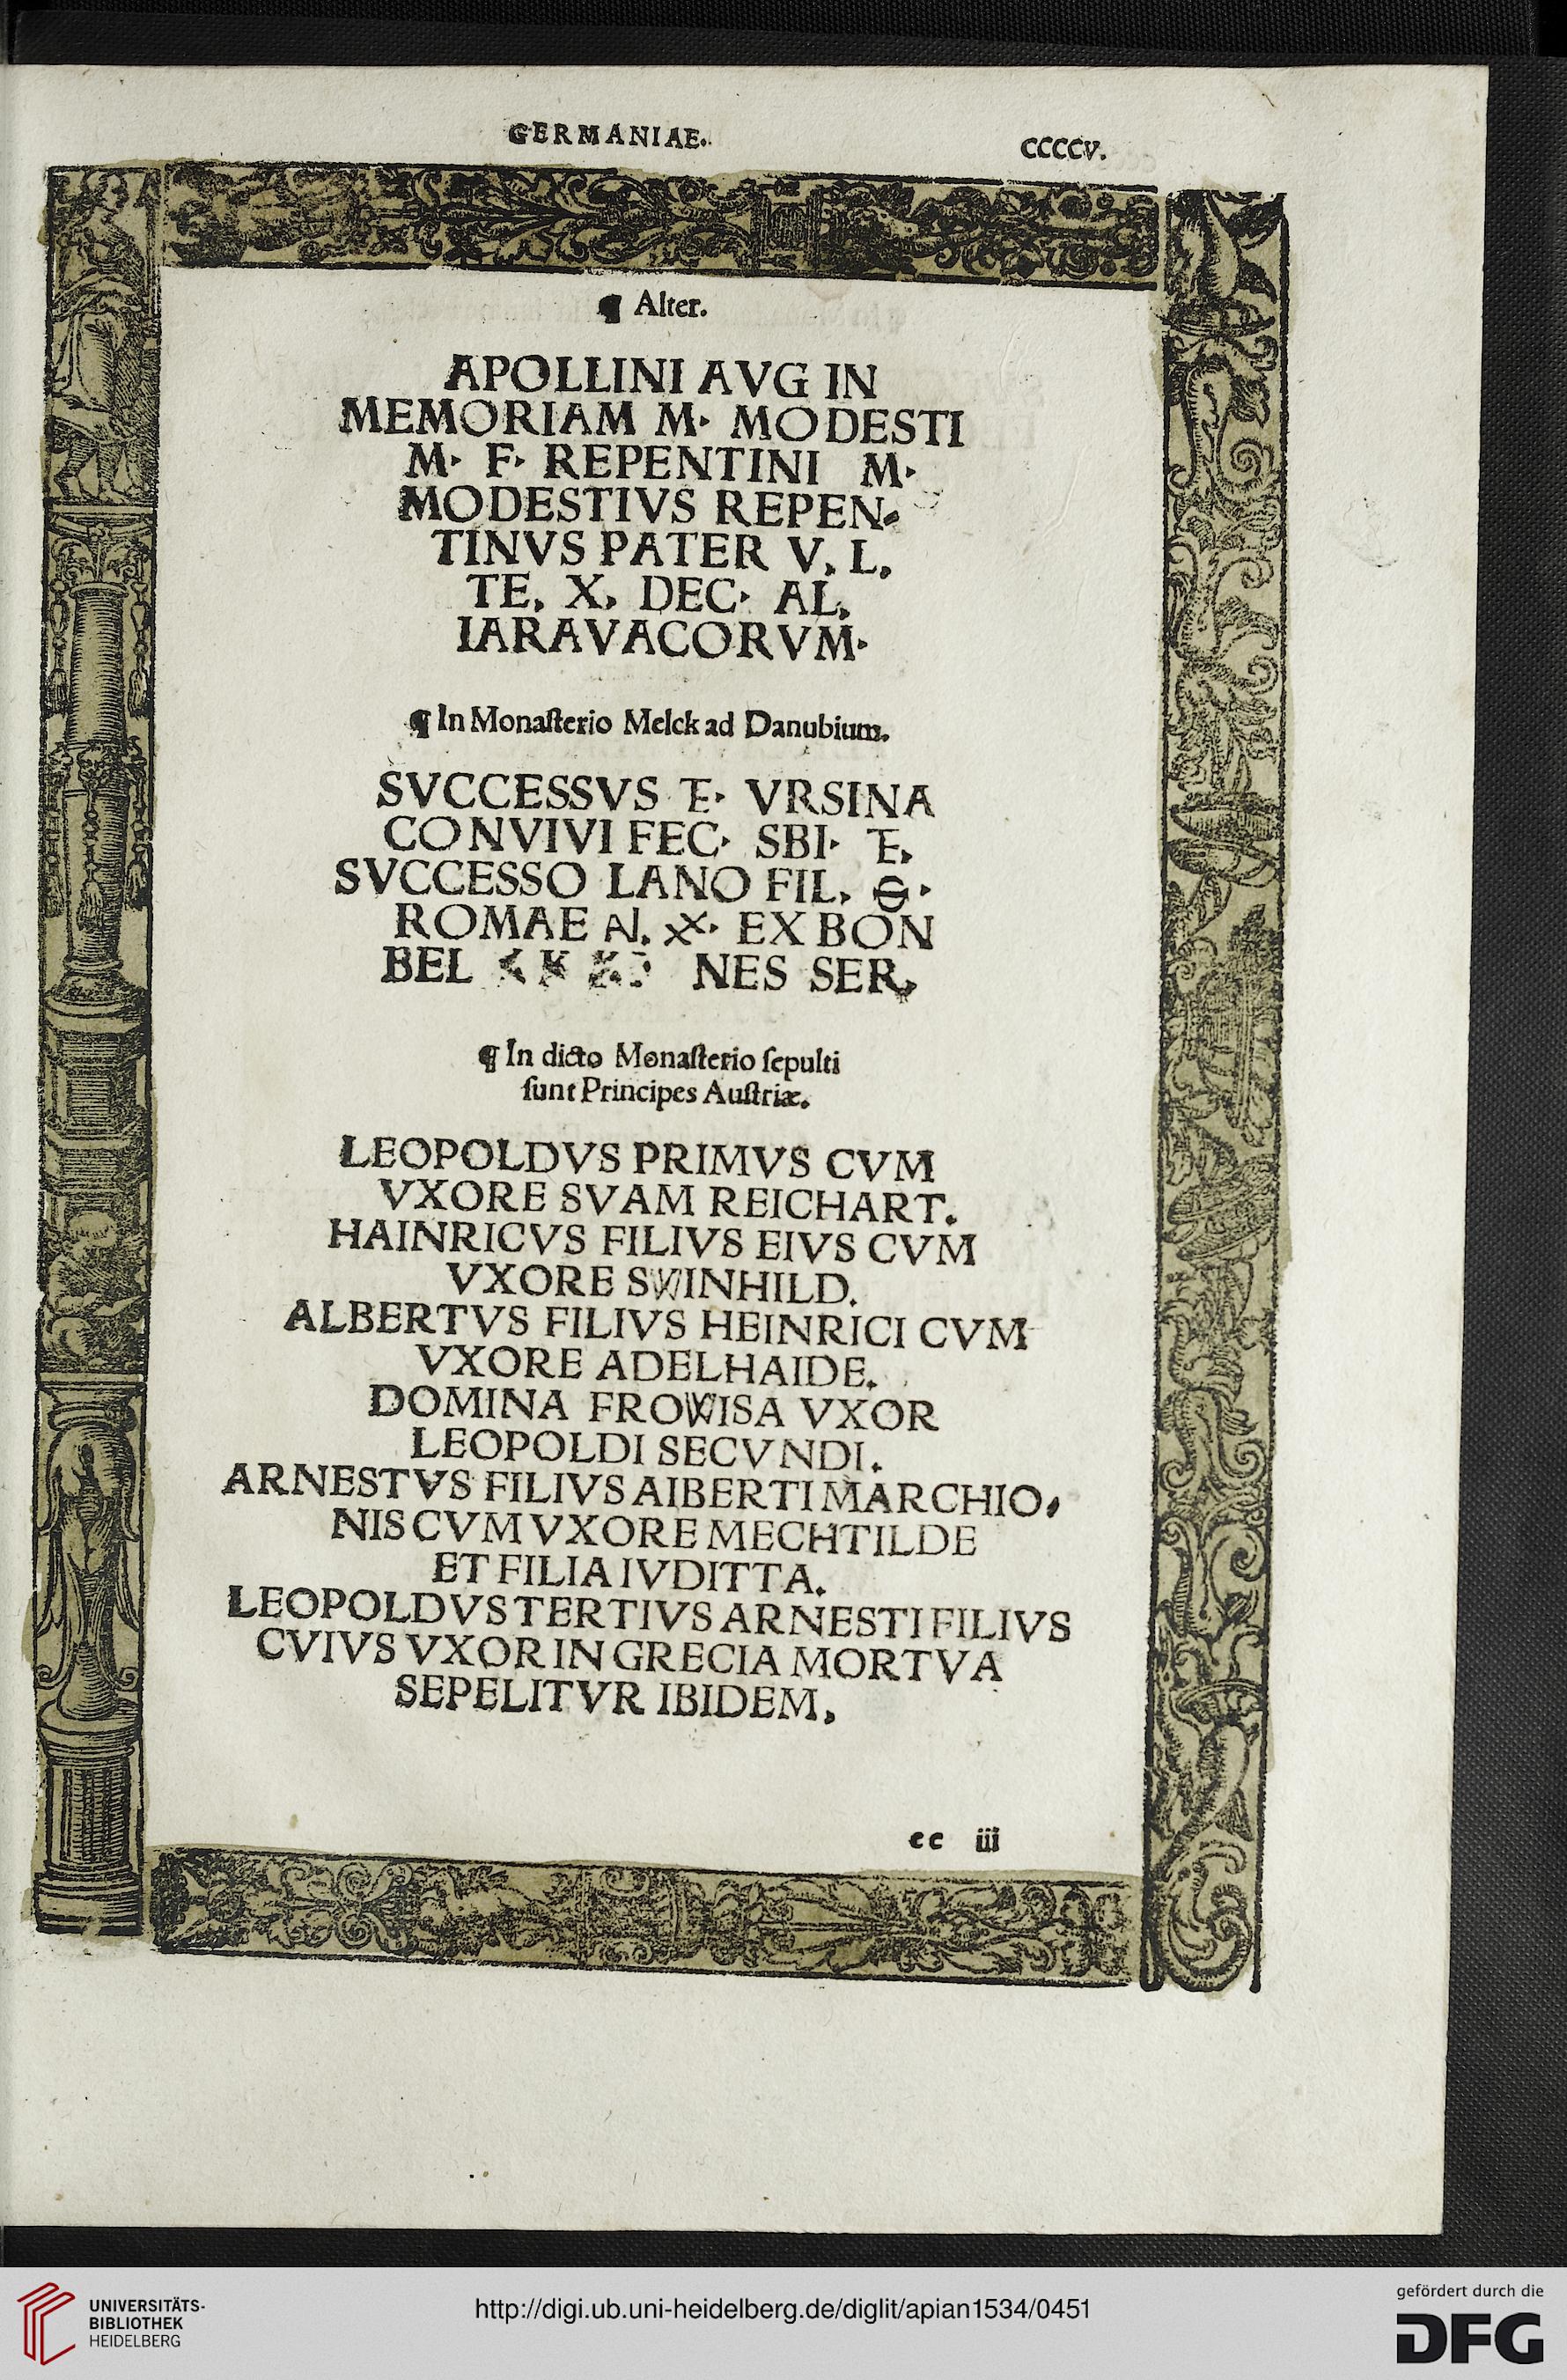 GERMANIAE.
CCCCV.
¶ Alter.
APOLLINI AVG IN
MEMORIAM M· MODESTI
M· F· REPENTINI M·
MODESTIVS REPEN-
TINVS PATER V, L,
TE, X, DEC· AL,
IARAVACORVM·
¶ In Monaſterio Melck ad Danubium.
SVCCESSVS TE· VRSINA
CONVIVI FEC· SBI· TE,
SVCCESSO LANO FIL,
ROMAE AI, XX· EX BON
BEL NES SER,
¶ In dicto Monaſterio ſepulti
ſunt Principes Auſtriæ.
LEOPOLDVS PRIMVS CVM
VXORE SVAM REICHART.
HAINRICVS FILIVS EIVS CVM
VXORE SWINHILD.
ALBERTVS FILIVS HEINRICI CVM
VXORE ADELHAIDE.
DOMINA FROWISA VXOR
LEOPOLDI SECVNDI.
ARNESTVS FILIVS AIBERTI MARCHIO-
NIS CVM VXORE MECHTILDE
ET FILIA IVDITTA.
LEOPOLDVS TERTIVS ARNESTI FILIVS
CVIVS VXOR IN GRECIA MORTVA
SEPELITVR IBIDEM,
cc iii
UNIVERSITÄTS-
BIBLIOTHEK
HEIDELBERG
http://digi.ub.uni-heidelberg.de/diglit/apian1534/0451
gefördert durch die
DFG